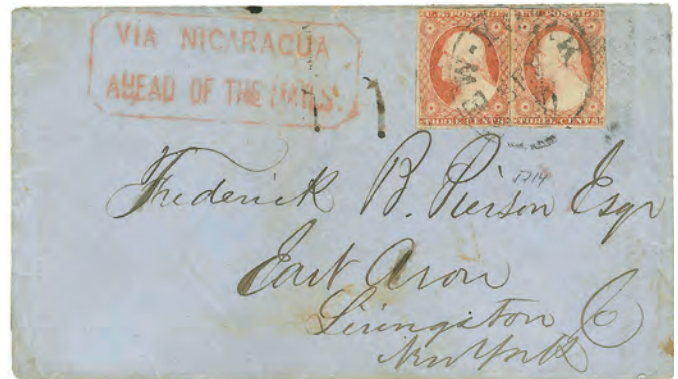 VIA NICARAGUA
AHEAD OF THE MAILS.
U.S. POSTAGE
THREE CENTS
U.S. POSTAGE
THREE CENTS
1714
Frederick B. Pierson Esqr
East Avon
Livingston Co
New York